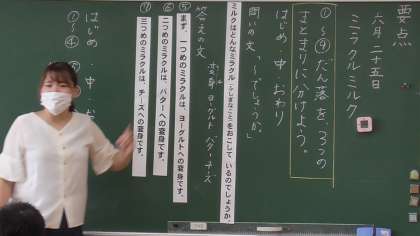 要点
六月二十五日
ミラクルミルク
①～⑨だん落を、三つの
まとまりに分けよう。
はじめ・中・おわり
問いの文「～でしょうか。」
ミルクはどんなミラクル(ふしぎなこと)をおこしているのでしょうか。
答えの文
変身 ヨーグルト バター チーズ
⑤
まず、一つめのミラクルは、ヨーグルトへの変身です。
⑥
二つめのミラクルは、バターへの変身です。
⑦
三つめのミラクルは、チーズへの変身です。
はじめ・中・お
①～④